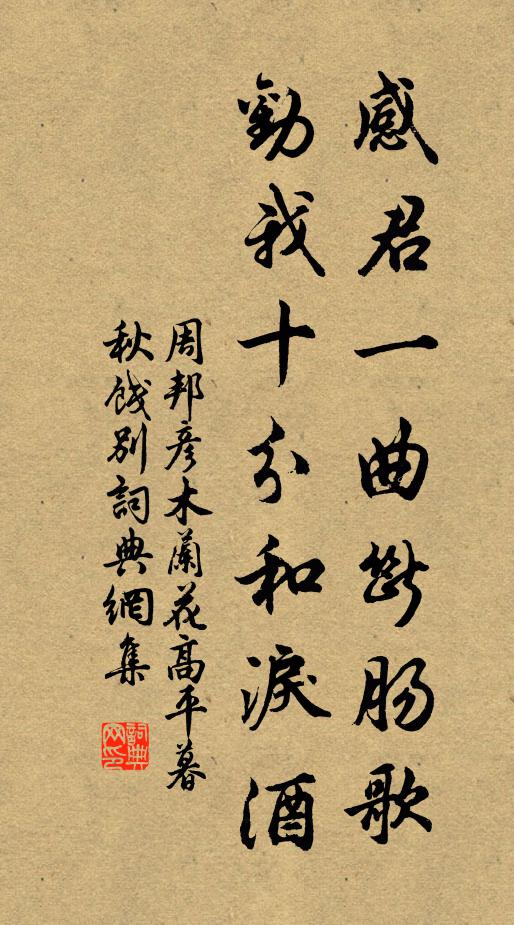 感君一曲斷腸歌
勸我十分和淚酒
周邦彥木蘭花高平暮
秋餞別詞典網集
詞典
网印